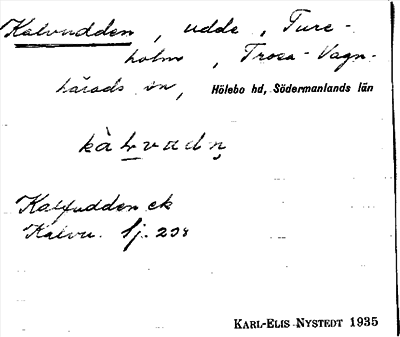 Kalvudden, udde, Ture-
holm, Trosa-Vagn-
härads sn, Hölebo hd, Södermanlands län
kàlvudn̥
Kalfudden ek
Kalvu. Sj. 238
KARL-ELIS NYSTEDT 1935